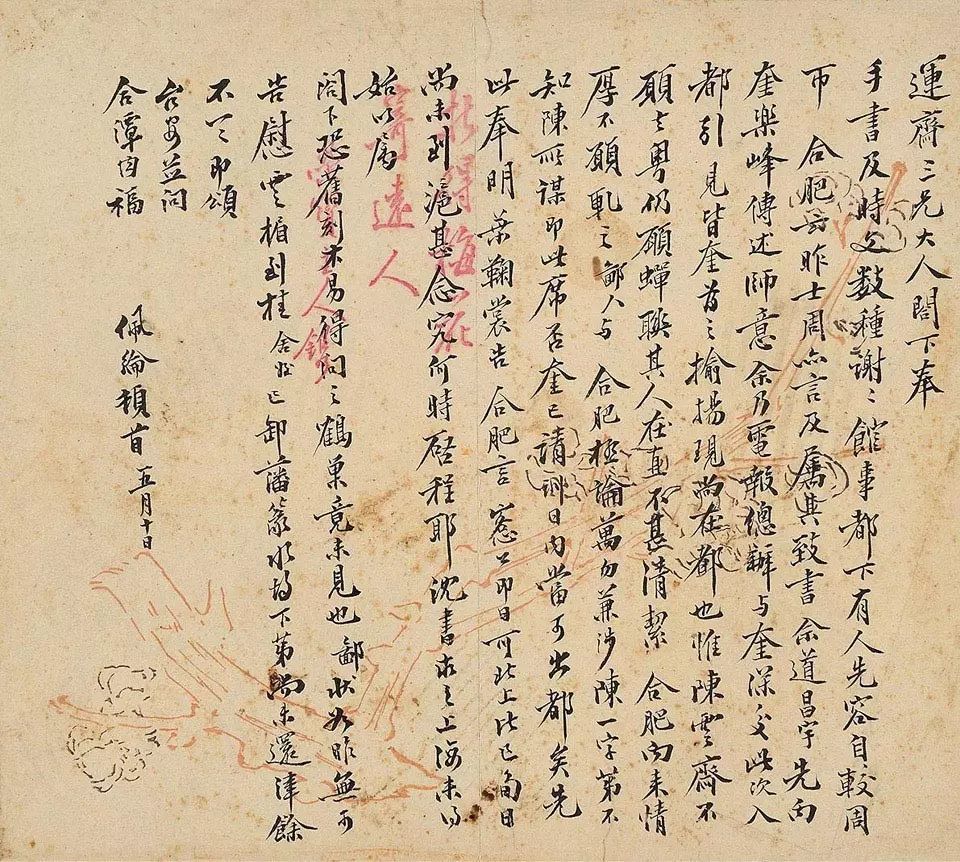 運齋三兄大人閣下奉
手書及時文數種謝〻館事都下有人先容自較周
帀 合肥公昨士周亦言及屬其致書余道昌宇先向
奎樂峰傳述師意余乃電報總辦與奎深交此次入
都引見皆奎為之揄揚現尚在都也惟陳雲齋不
願去粵仍願蟬聯其人在直不甚清潔 合肥向來情
厚不願軋之鄙人與 合肥極論萬勿兼涉陳一字第不
知陳所謀即此席否奎已請訓日內當可出都矣先
此奉明葉鞠裳告 合肥言窓公即日可北上比已旬日
尚未到滬甚念究何時啟程耶沈書求之上海未得
始以屬
閣下恐舊刻不易得詢之鶴巢竟未見也鄙狀如昨無可
告慰雲楣到桂舍姪已卸藩篆 下第尚未還津餘
不一一即頌
台安並問
合潭均福
佩綸頓首 五月十日
折得梅花
寄遠人